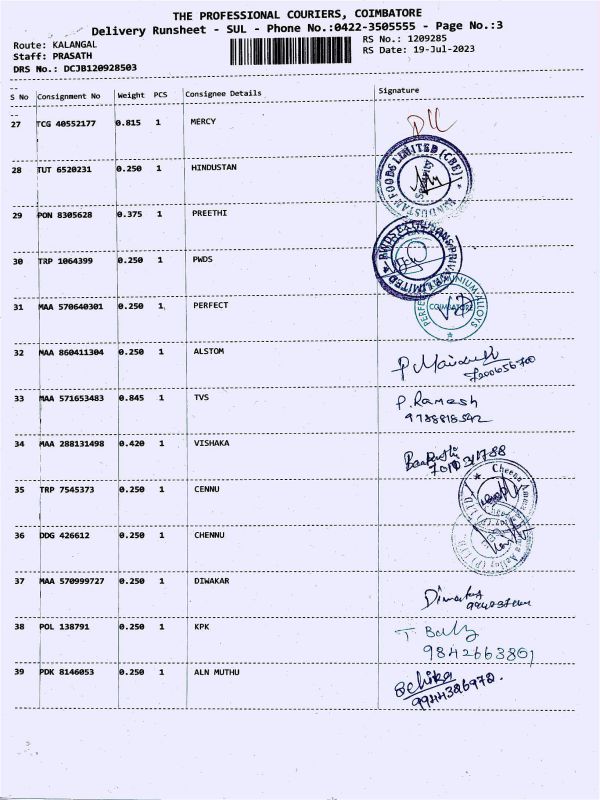 THE PROFESSIONAL COURIERS, COIMBATORE
Delivery Runsheet - SUL - Phone No.:0422-3505555 - Page No.:3
Route: KALANGAL
RS No.: 1209285
Staff: PRASATH
RS Date: 19-Jul-2023
DRS No.: DCJB120928503
S No Consignment No Weight PCS Consignee Details Signature
27 TCG 40552177 0.815 1 MERCY
28 TUT 6520231 0.250 1 HINDUSTAN
HINDUSTAN FOODS LIMITED (CBE)
Security
29 PON 8305628 0.375 1 PREETHI
30 TRP 1064399 0.250 1 PWDS
31 MAA 570640301 0.250 1 PERFECT
PERFECT ALUMINIUM ALLOYS
COIMBATORE
32 MAA 860411304 0.250 1 ALSTOM
33 MAA 571653483 0.845 1 TVS
P. Ramesh
34 MAA 288131498 0.420 1 VISHAKA
35 TRP 7545373 0.250 1 CENNU
36 DDG 426612 0.250 1 CHENNU
37 MAA 570999727 0.250 1 DIWAKAR
38 POL 138791 0.250 1 KPK
9842663861
39 PDK 8146053 0.250 1 ALN MUTHU
9944326972.